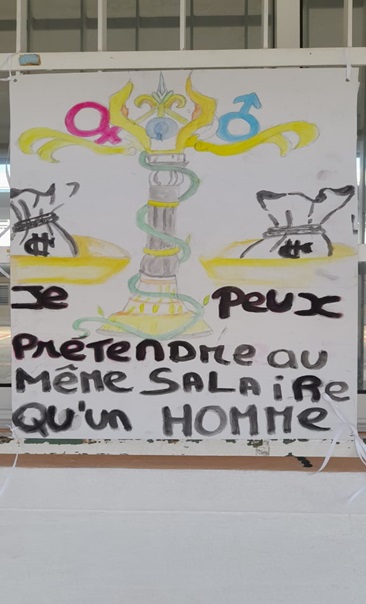 Je Peux
PRÉTENDRE au
MÊME SALAiRe
QU'un HOMME